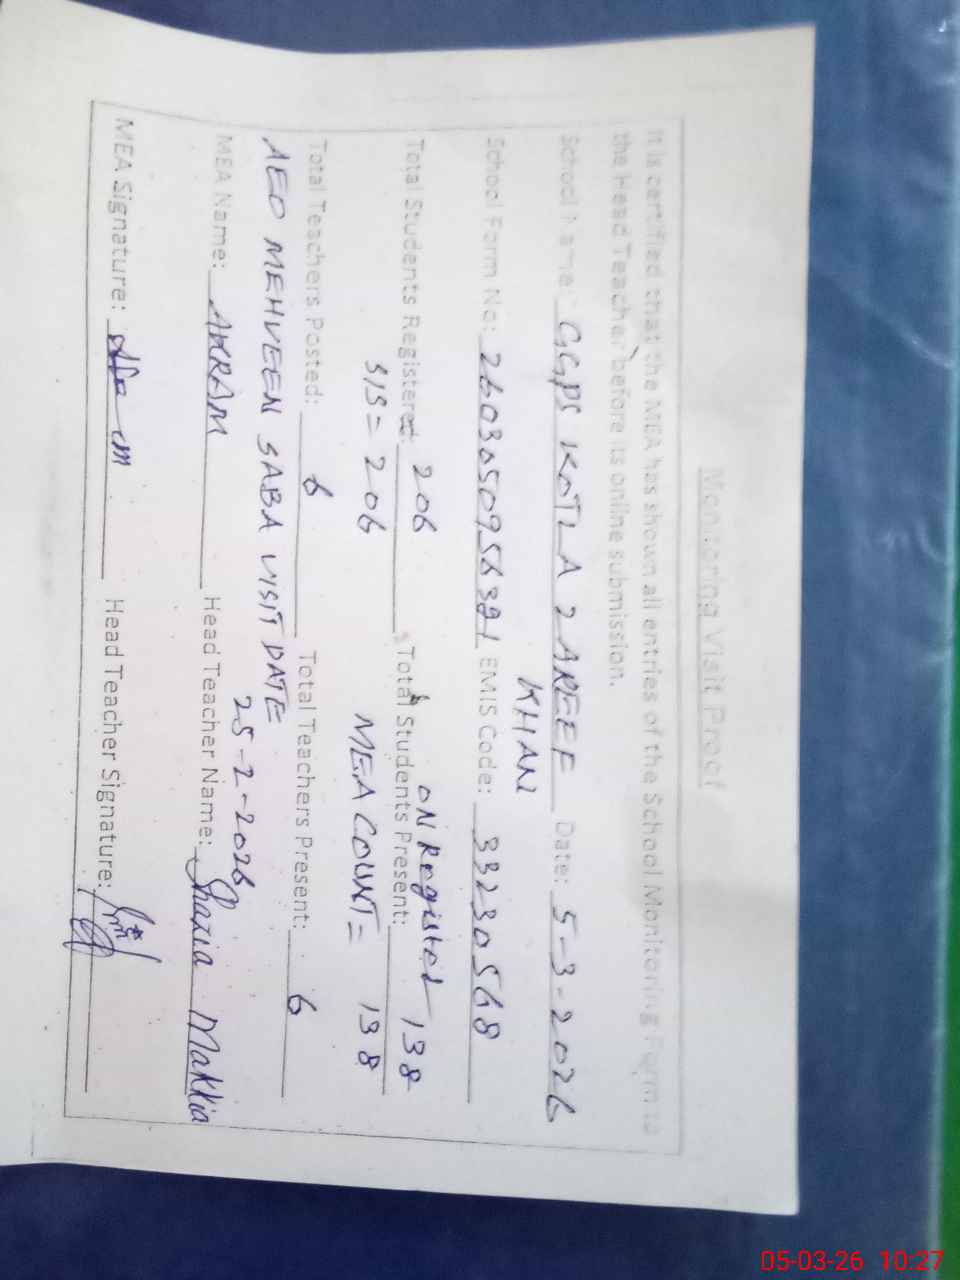 Monitoring Visit Proof
It is certified that the MEA has shown all entries of the School Monitoring Form to
the Head Teacher before its online submission.
School Name: GGPS KOTLA 2 AREEF Date: 5-3-2026
KHAN
School Form No: EMIS Code: 33230568
Total Students Registered: 206 Total Students Present: ON Registed 138
SIS = 206 MEA COUNT = 138
Total Teachers Posted: 6 Total Teachers Present: 6
AEO MEHVEEN SABA VISIT DATE
25-2-2026
MEA Name: AKRAM Head Teacher Name: Shazia Makkia
MEA Signature: Head Teacher Signature:
05-03-26 10:27